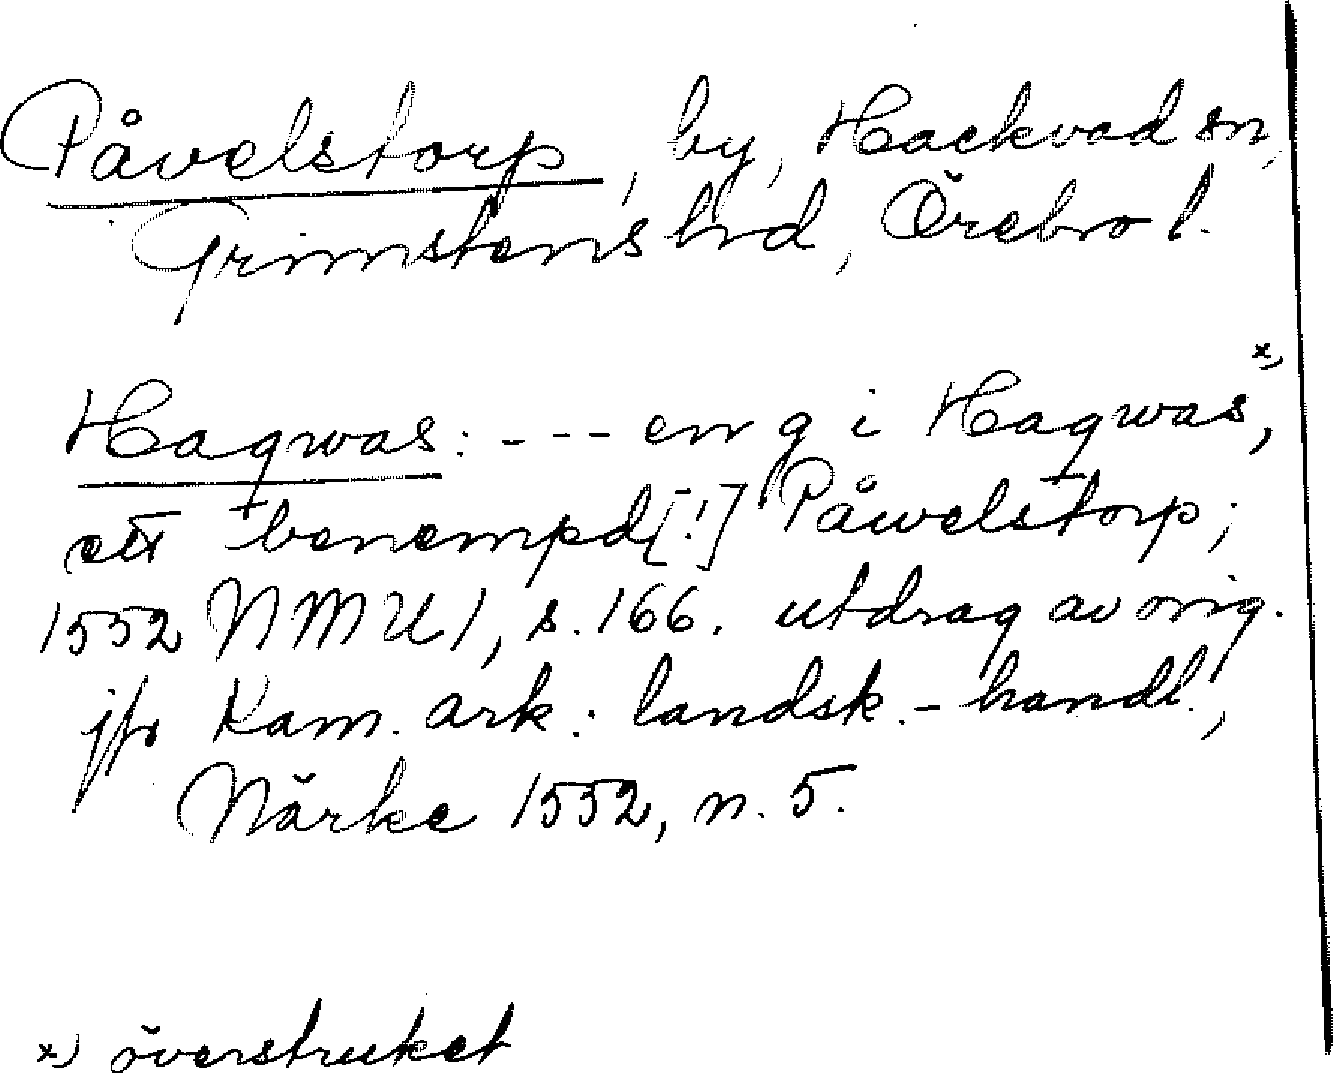 Påvelstorp, by, Hackvad sn,
Grimstens hrd, Örebro l.
Hagwas: - - - en g i Hagwas x),
ett benempd [!] Påwelstorp;
1552 NMU 1, s. 166. utdrag av orig.
jfr Kam. ark. : landsk. - handl.,
Närke 1552, n. 5.
x) överstruket